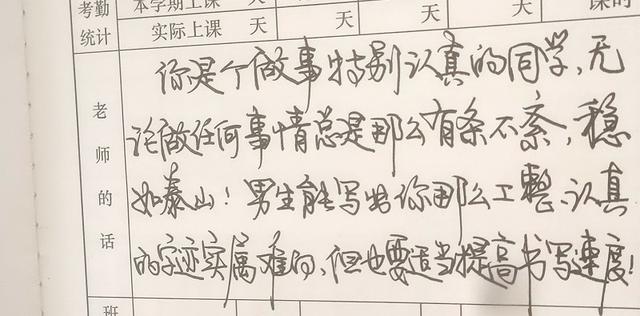 考勤 本学期上课 天 天 天 天 课的
统计 实际上课 天 天 天 天
老师的话
你是个做事特别认真的同学,无
论做任何事情总是那么有条不紊,稳
如泰山!男生能写出你那么工整、认真
的字迹实属难的,但也要适当提高书写速度!
班